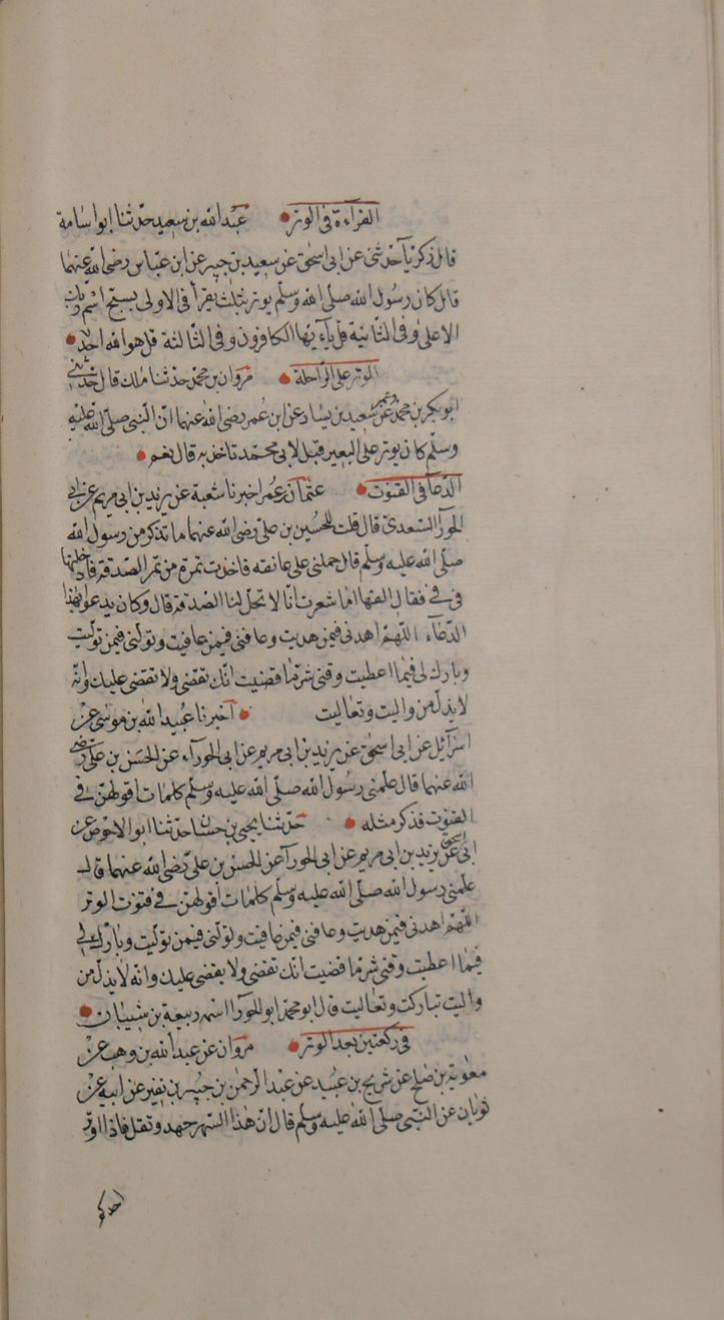 القراءة في الوتر عبد الله بن سعيد حدثنا ابو اسامة
قال ذكريا حدثني عن ابي اسحق عن سعيد بن جبير عن ابن عباس رضي الله عنهما
قال كان رسول الله صلى الله وسلم يوتر بثلث يقرأ في الاولى بسبح اسم ربك
الاعلى وفي الثانية قل يآءيها الكافرون وفي الثالثة قل هو الله احد
الوتر على الراحلة مروان بن محمد حدثنا ملك قال حدثني
ابو بكر بن محمد عن سعيد بن يسار عن ابن عمر رضي الله عنهما ان النبي صلى الله عليه
وسلم كان يوتر على البعير قيل لابي محمد تاخذ به قال نعم
الدعآ في القنوت عثمان بن عمر اخبرنا شعبة عن بريد بن ابي مريم عن ابي
الحورآ السعدي قال قلت للحسين بن علي رضي الله عنهما ما تذكر من رسول الله
صلى الله عليه وسلم قال حملني على عاتقه فاخذت تمرة من تمر الصدقة فادخلتها
في في فقال القها اما شعرت انا لا تحل لنا الصدقة قال وكان يدعو بهذا
الدعآء اللهم اهدني فيمن هديت وعافني فيمن عافيت وتولني فيمن توليت
وبارك لي فيما اعطيت وقني شر ما قضيت انك تقضي ولا تقضى عليك وانه
لا يذل من واليت وتعاليت اخبرنا عبيد الله بن موسى عن
اسرآئيل عن ابي اسحق عن بريد بن ابي مريم عن ابي الحورآء عن الحسن بن علي رضي
الله عنهما قال علمني رسول الله صلى الله عليه وسلم كلمات اقولهن في
القنوت فذكر مثله حدثنا يحيى بن حسان حدثنا ابو الاحوص عن
ابي اسحق عن بريد بن ابي مريم عن ابي الحورآ عن الحسن بن علي رضي الله عنهما قال
علمني رسول الله صلى الله عليه وسلم كلمات اقولهن في قنوت الوتر
اللهم اهدني فيمن هديت وعافني فيمن عافيت وتولني فيمن توليت وبارك لي
فيما اعطيت وقني شر ما قضيت انك تقضي ولا يقضى عليك وانه لا يذل من
واليت تباركت وتعاليت قال ابو محمد ابو الحورآ اسمه ربيعة بن شيبان
في ركعتين بعد الوتر مروان عن عبد الله بن وهب عن
معوية بن صلح عن شريح بن عبيد عن عبد الرحمن بن جبير بن نفير عن ابيه عن
ثوبان عن النبي صلى الله عليه وسلم قال ان هذا السهر جهد وثقل فاذا اوتر
احدكم